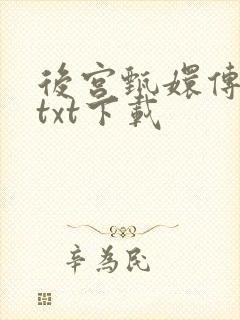 後宮甄嬛傳
txt下載
辛為民